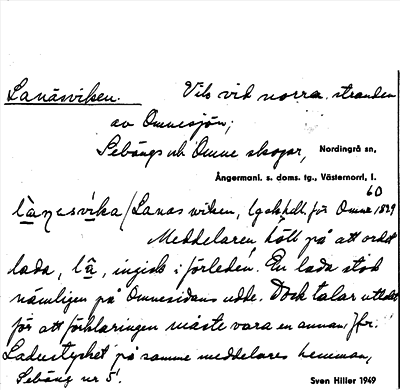 Lanäsviken. Vik vid norra stranden
av Omnesjön;
Sebångs och Omne skogar, Nordingrå sn,
Ångermanl. s. doms. tg., Västernorrl. l.
60
lànesvika / Lanas wiken, lgalshdl. för Omne 1829
Meddelaren höll på att ordet
lada, lâ, ingick i förleden. En lada stod
nämligen på Omnesidans udde. Dock talar uttalet
för att förklaringen måste vara en annan. Jfr.
Ladustycket på samme meddelares hemman,
Sebång nr 5.
Sven Hiller 1949